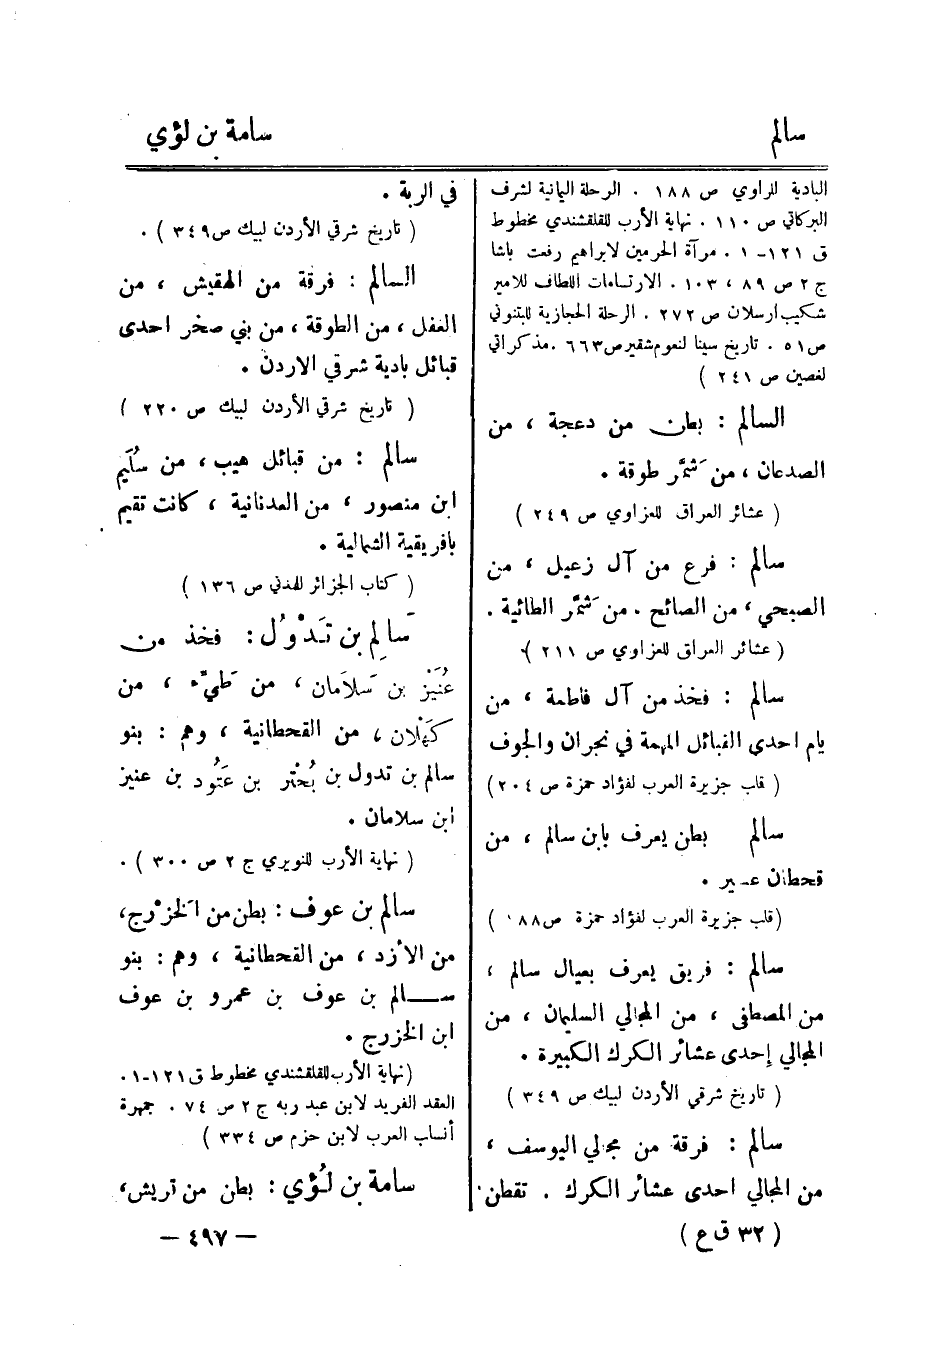 سالم
سامة بن لؤي
البادية للراوي ص ١٨٨ . الرحلة اليمانية لشرف
البركاتي ص ١١٠ . نهاية الأرب للقلقشندي مخطوط
ق ١٢١-١ . مرآة الحرمين لابراهيم رفعت باشا
ج ٢ ص ٨٩ ، ١٠٣ . الارتسامات اللطاف للامير
شكيب ارسلان ص ٢٧٢ . الرحلة الحجازية للبتنوني
ص ٥١ . تاريخ سينا لنعوم شقير ص ٦٦٣ . مذكراتي
لفصين ص ٢٤١ )
السالم : بطن من دعجة ، من
الصدعان ، من شَمَّر طوقة .
( عشائر العراق للعزاوي ص ٢٤٩ )
سالم : فرع من آل زعيل ، من
الصبحي ، من الصائح . من شَمَّر الطائية .
( عشائر العراق للعزاوي ص ٢١١ )
سالم : فخذ من آل فاطمة ، من
يام احدى القبائل المهمة في نجران والجوف
( قلب جزيرة العرب لفؤاد حمزة ص ٢٠٤ )
سالم بطن يعرف بابن سالم ، من
قحطان عسير .
( قلب جزيرة العرب لفؤاد حمزة ص ١٨٨ )
سالم : فريق يعرف بعيال سالم ،
من المصطفى ، من المجالي السليمان ، من
المجالي إحدى عشائر الكرك الكبيرة .
( تاريخ شرقي الأردن لبيك ص ٣٤٩ )
سالم : فرقة من مجالي اليوسف ،
من المجالي احدى عشائر الكرك . تقطن
( ٣٢ ق ع )
في الربة .
( تاريخ شرقي الأردن لبيك ص ٣٤٩ ) .
السالم : فرقة من الهقيش ، من
الغفل ، من الطوقة ، من بني صخر احدى
قبائل بادية شرقي الاردن .
( تاريخ شرقي الأردن لبيك ص ٢٢٠ )
سالم : من قبائل هيب ، من سُلَيم
ابن منصور ، من العدنانية ، كانت تقيم
بافريقية الشمالية .
( كتاب الجزائر للمدني ص ١٣٦ )
سَالِم بن تَدْوُل : فخذ من
عُنَيْز بن سَلَامان ، من طَيِّء ، من
كَهْلان ، من القحطانية ، وهم : بنو
سالم بن تدول بن بُحْتر بن عَتُود بن عنيز
ابن سلامان .
( نهاية الأرب للنويري ج ٢ ص ٣٠٠ ) .
سالم بن عوف : بطن من الخَزْرج ،
من الأزد ، من القحطانية ، وهم : بنو
سالم بن عوف بن عمرو بن عوف
ابن الخزرج .
( نهاية الأرب للقلقشندي مخطوط ق ١٢١-١ .
العقد الفريد لابن عبد ربه ج ٢ ص ٧٤ . جمهرة
أنساب العرب لابن حزم ص ٣٣٤ )
سامة بن لُؤي : بطن من قريش ،
— ٤٩٧ —